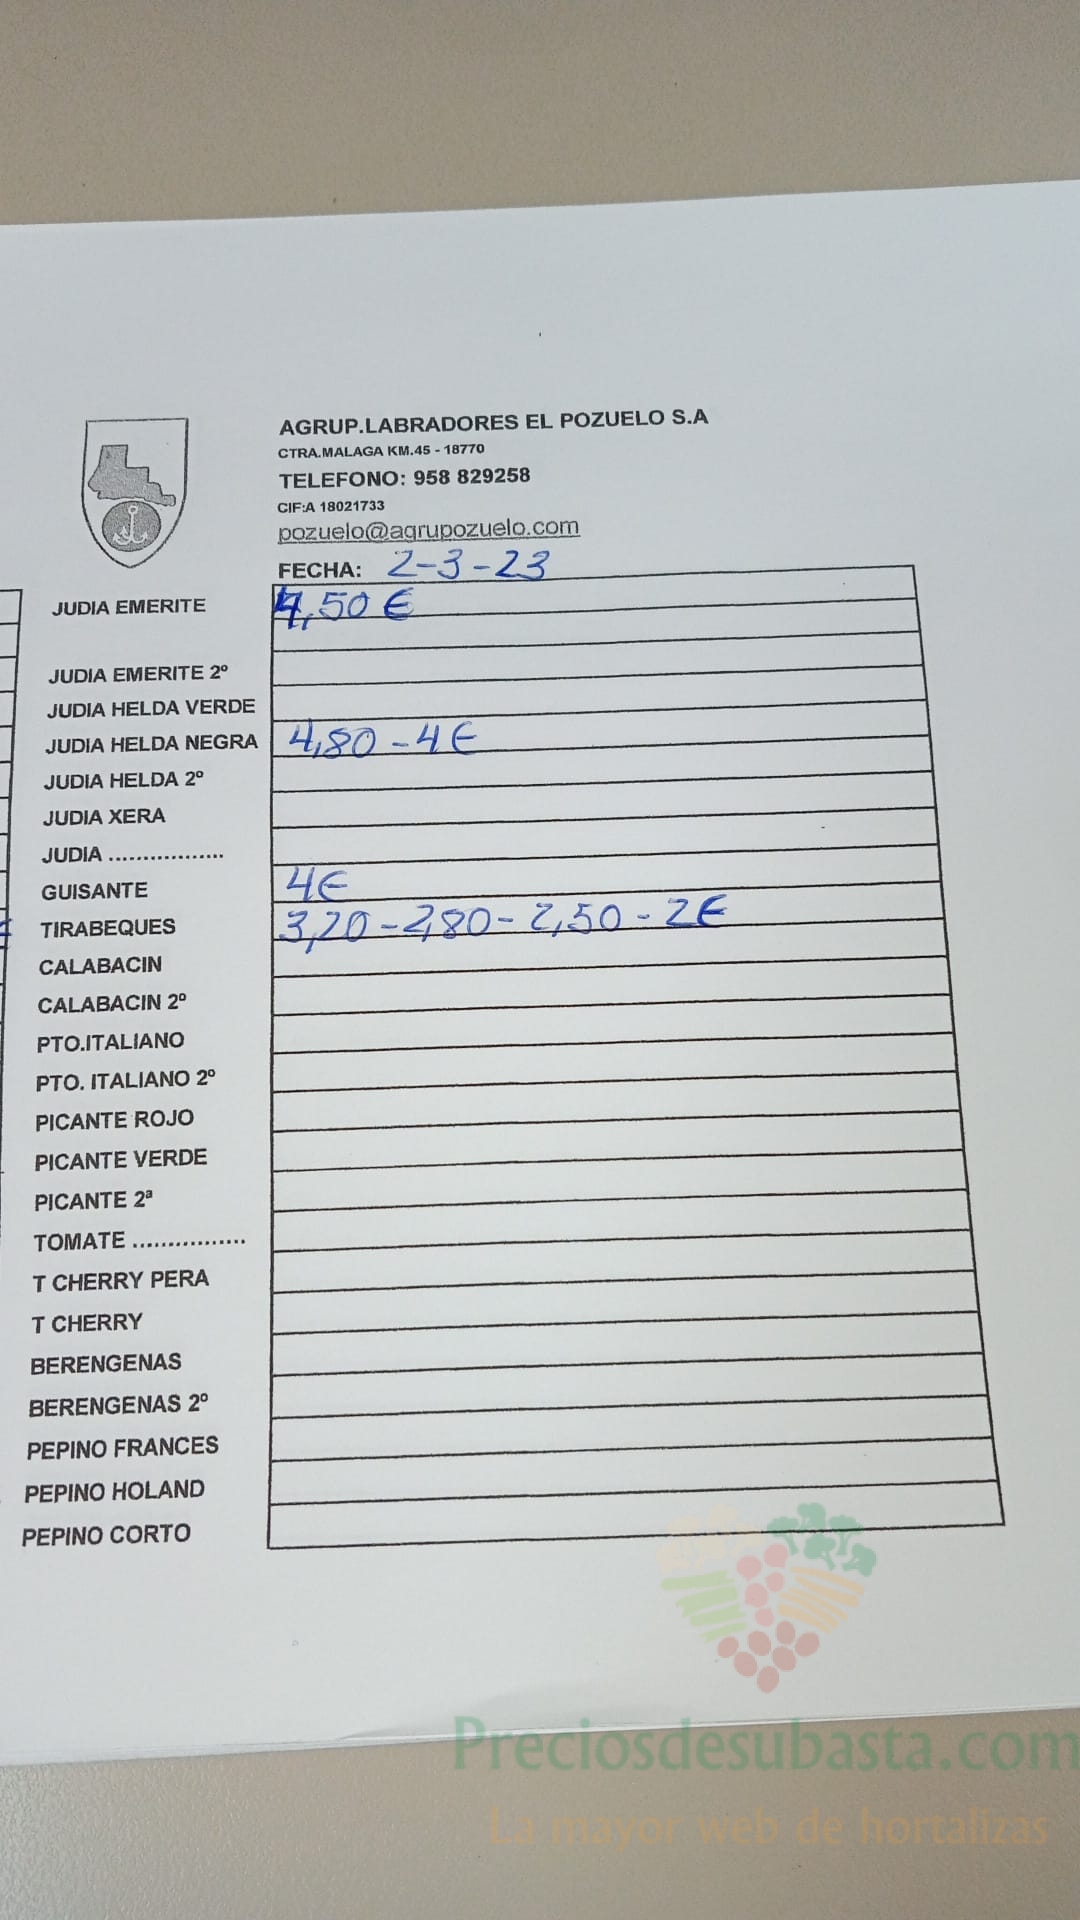 AGRUP.LABRADORES EL POZUELO S.A
CTRA.MALAGA KM.45 - 18770
TELEFONO: 958 829258
CIF:A 18021733
pozuelo@agrupozuelo.com
FECHA: 2-3-23
JUDIA EMERITE 4,50 €
JUDIA EMERITE 2º
JUDIA HELDA VERDE
JUDIA HELDA NEGRA 4,80 - 4 €
JUDIA HELDA 2º
JUDIA XERA
JUDIA .................
GUISANTE 4€
TIRABEQUES 3,20 - 2,80 - 2,50 - 2€
CALABACIN
CALABACIN 2º
PTO.ITALIANO
PTO. ITALIANO 2º
PICANTE ROJO
PICANTE VERDE
PICANTE 2ª
TOMATE ................
T CHERRY PERA
T CHERRY
BERENGENAS
BERENGENAS 2º
PEPINO FRANCES
PEPINO HOLAND
PEPINO CORTO
Preciosdesubasta.com
La mayor web de hortalizas